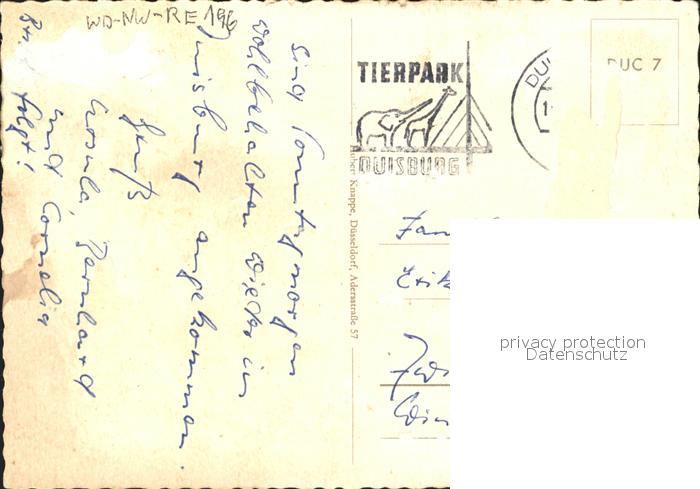 WD-NW-RE 196
Sind Sonntagmorgen
Wohlbehalten wieder in
Duisburg angekommen.
Gruß
Ursula, Bernhard
und Cornelia
folgt!
TIERPARK
DUISBURG
DU
DUC 7
Knappe, Düsseldorf, Adersstraße 57
Fam
Erik
privacy protection
Datenschutz